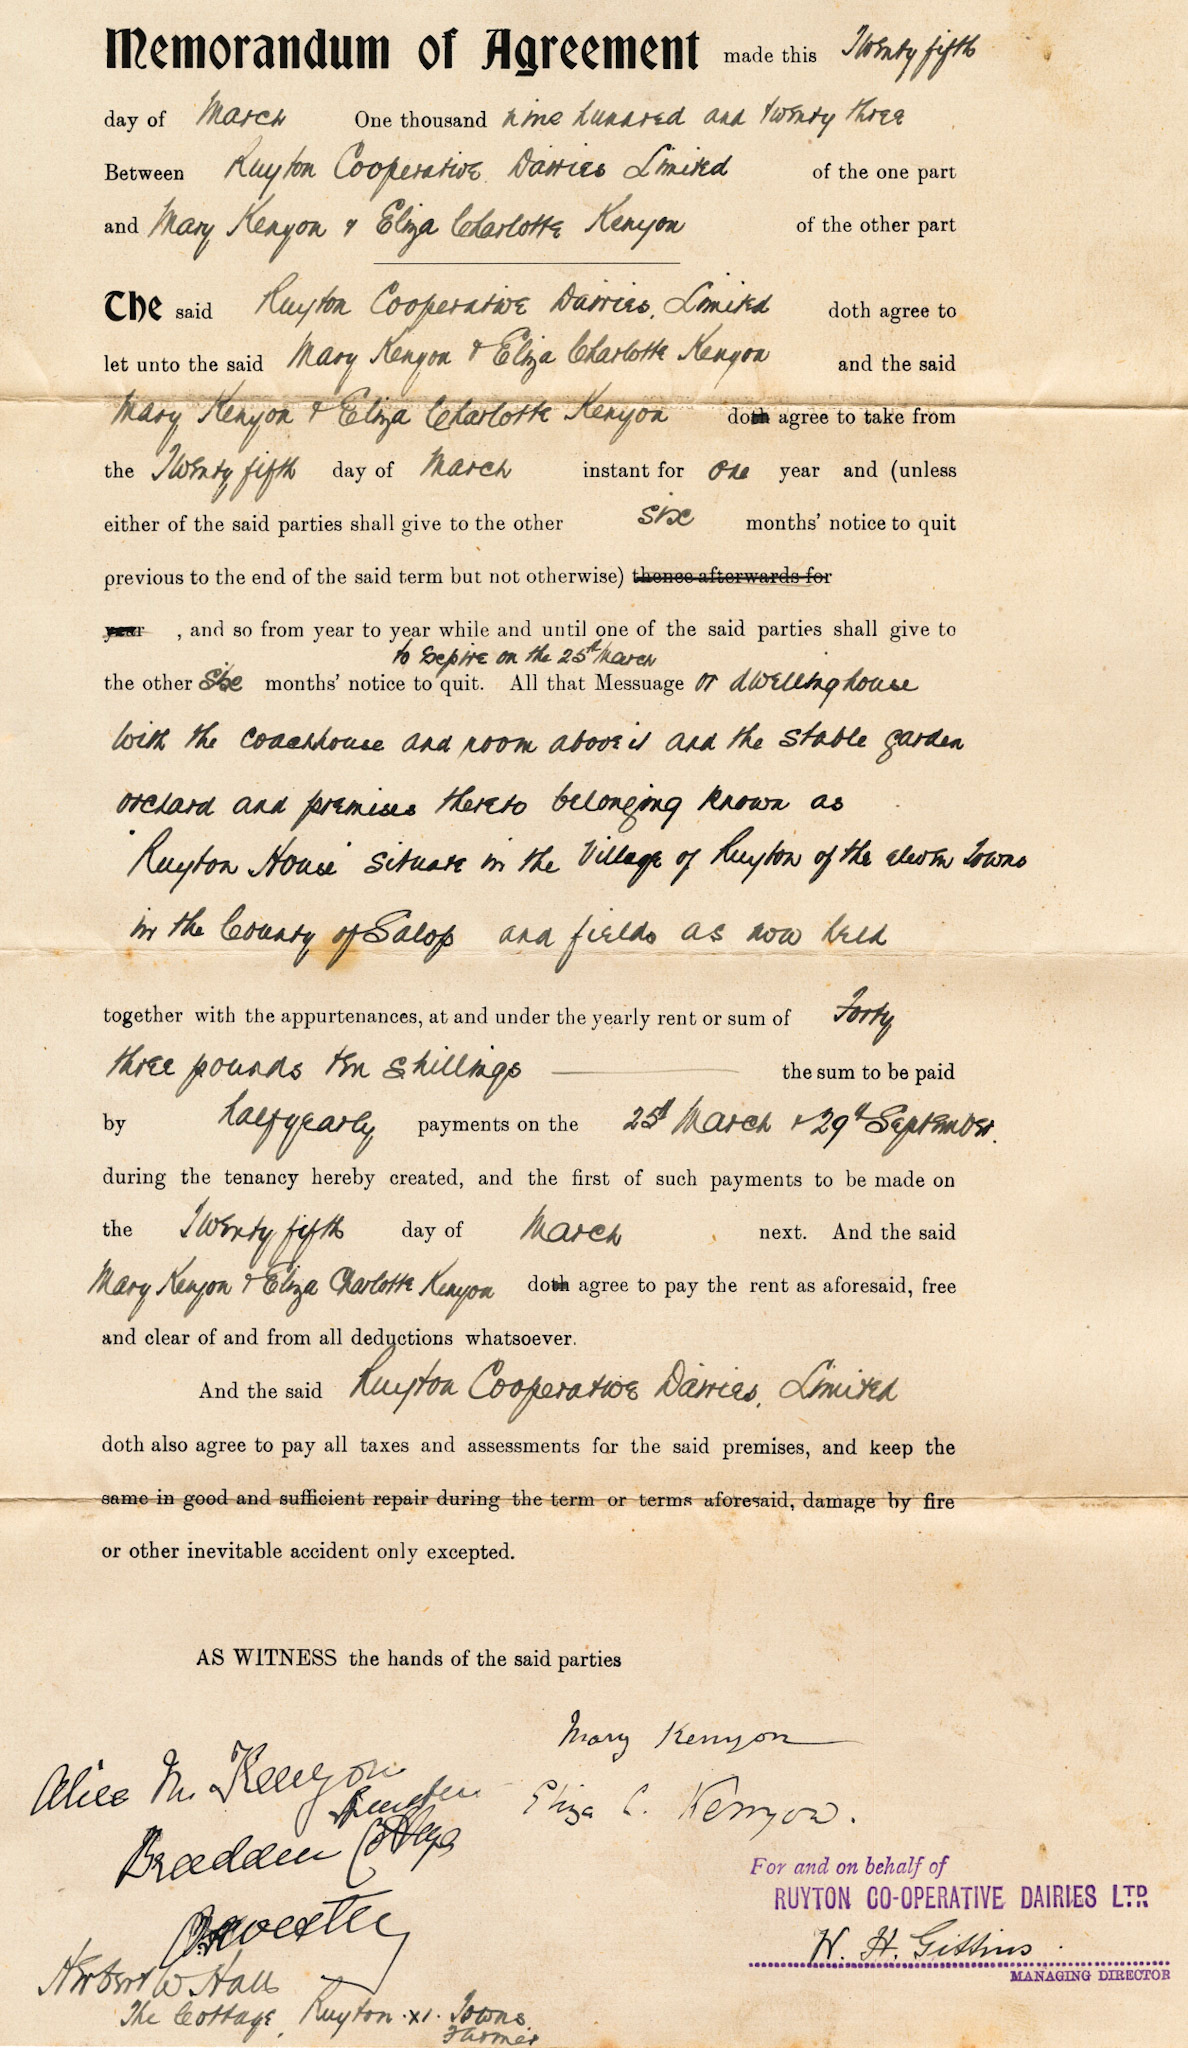 Memorandum of Agreement made this Twenty fifth
day of March One thousand nine hundred and twenty three
Between Ruyton Cooperative Dairies Limited of the one part
and Mary Kenyon & Eliza Charlotte Kenyon of the other part
The said Ruyton Cooperative Dairies, Limited doth agree to
let unto the said Mary Kenyon & Eliza Charlotte Kenyon and the said
Mary Kenyon & Eliza Charlotte Kenyon doth agree to take from
the Twenty fifth day of March instant for one year and (unless
either of the said parties shall give to the other six months' notice to quit
previous to the end of the said term but not otherwise) thence afterwards for
year , and so from year to year while and until one of the said parties shall give to
to expire on the 25th March
the other six months' notice to quit. All that Messuage or dwellinghouse
with the coachhouse and room above it and the stable garden
orchard and premises thereto belonging known as
"Ruyton House" situate in the Village of Ruyton of the eleven Towns
in the County of Salop and fields as now held
together with the appurtenances, at and under the yearly rent or sum of Forty
three pounds ten shillings the sum to be paid
by halfyearly payments on the 25th March & 29th September.
during the tenancy hereby created, and the first of such payments to be made on
the Twenty fifth day of March next. And the said
Mary Kenyon & Eliza Charlotte Kenyon doth agree to pay the rent as aforesaid, free
and clear of and from all deductions whatsoever.
And the said Ruyton Cooperative Dairies, Limited
doth also agree to pay all taxes and assessments for the said premises, and keep the
same in good and sufficient repair during the term or terms aforesaid, damage by fire
or other inevitable accident only excepted.
AS WITNESS the hands of the said parties
Mary Kenyon
Alice M. Kenyon
Eliza C. Kenyon.
For and on behalf of
RUYTON CO-OPERATIVE DAIRIES LTD.
W. H. Gittins
MANAGING DIRECTOR
Oswestry
Herbert W Hall
The Cottage, Ruyton ·XI· Towns.
Farmer